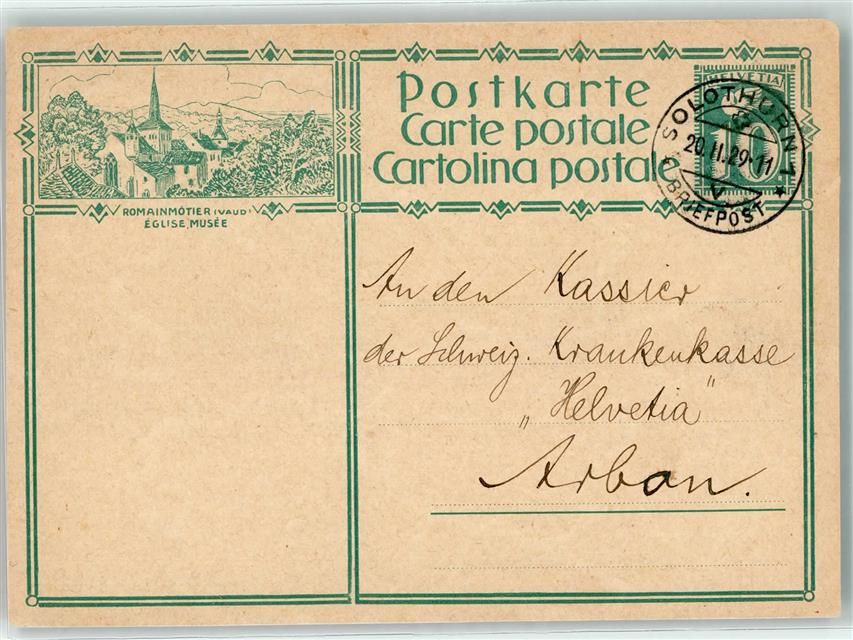 Postkarte
Carte postale
Cartolina postale
HELVETIA
10
SOLOTHURN 1
20.II.29-11
V
BRIEFPOST
ROMAINMÔTIER (VAUD)
ÉGLISE, MUSÉE
An den Kassier
der Schweiz. Krankenkasse
„Helvetia"
Arbon.